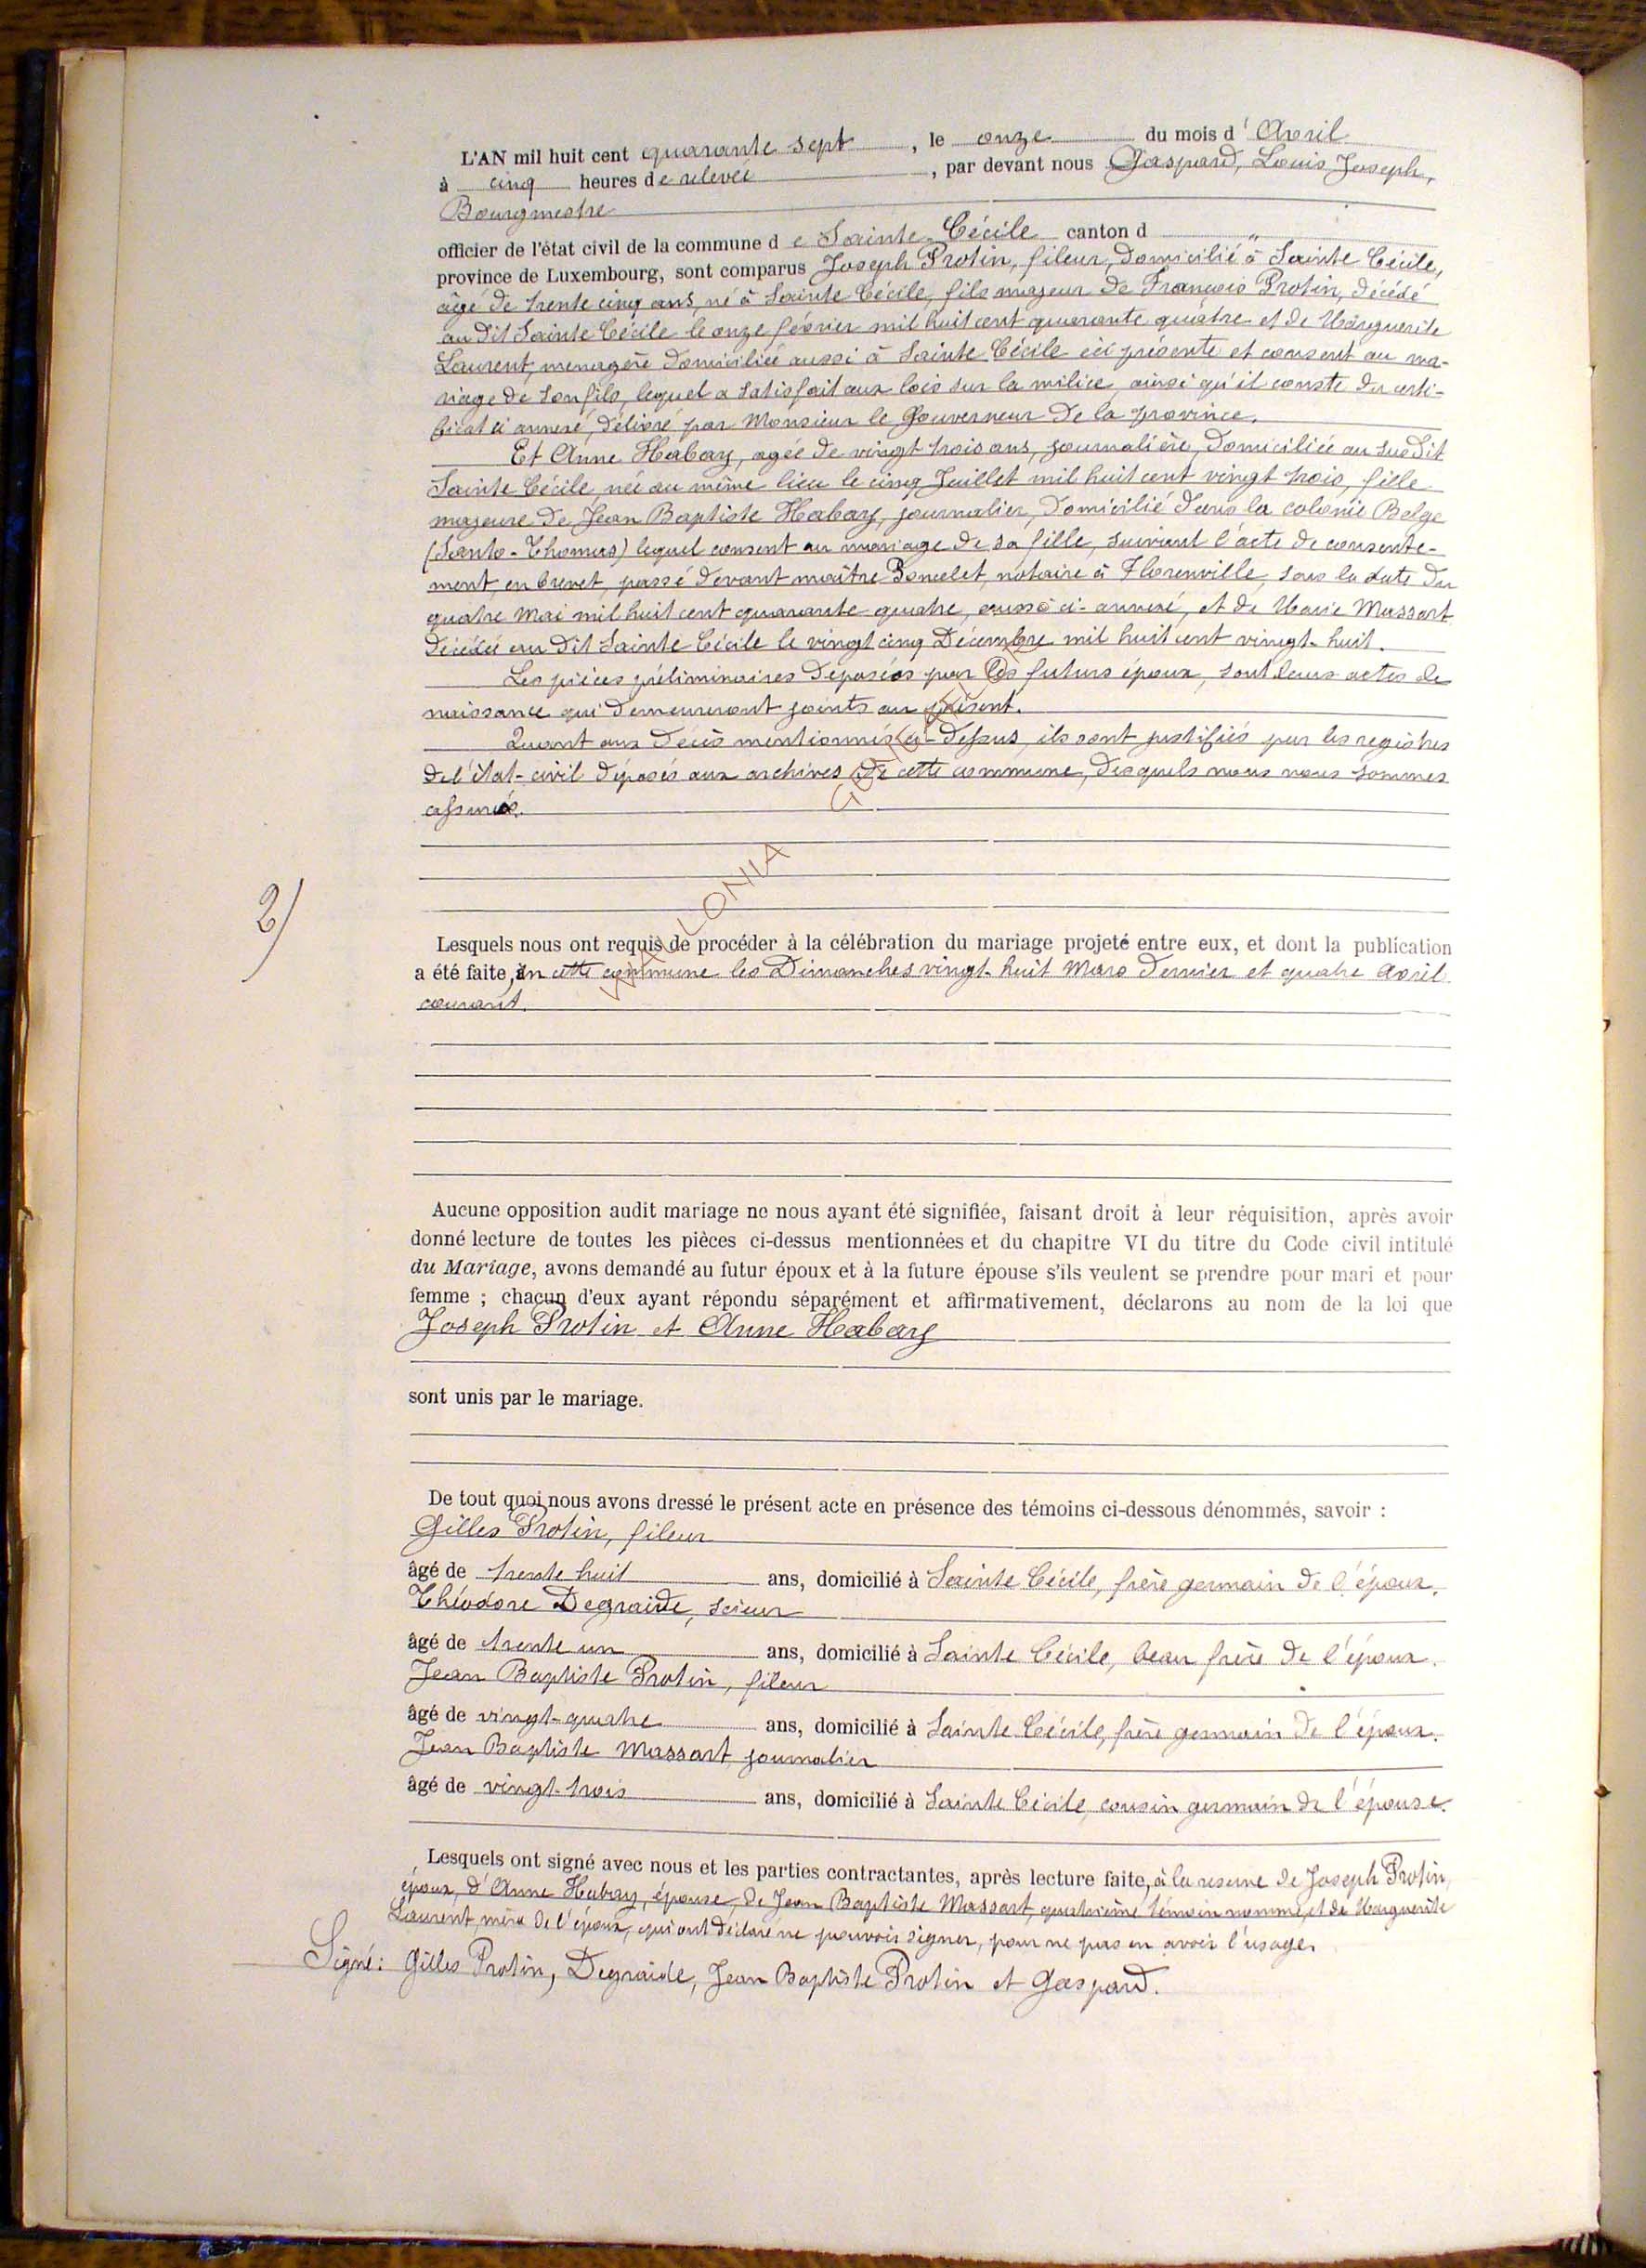 L'AN mil huit cent quarante sept, le onze du mois d'Avril
à cinq heures de relevée, par devant nous Gaspard, Louis Joseph,
Bourgmestre
officier de l'état civil de la commune de Sainte-Cécile canton d "
province de Luxembourg, sont comparus Joseph Protin, fileur, domicilié à Sainte Cécile,
âgé de trente cinq ans, né à Sainte Cécile, fils majeur de François Protin, décédé
au dit Sainte Cécile le onze février mil huit cent quarante quatre et de Marguerite
Laurent, menagère domiciliée aussi à Sainte Cécile ici présente et consent au ma-
riage de son fils, lequel a satisfait aux lois sur la milice ainsi qu'il conste du certi-
ficat ci annexé, délivré par Monsieur le Gouverneur de la province.
Et Anne Habay, agée de vingt trois ans, journalière, domiciliée au susdit
Sainte Cécile, née au même lieu le cinq Juillet mil huit cent vingt trois, fille
majeure de Jean Baptiste Habay, journalier, domicilié dans la colonie Belge
(Santo-Thomas) lequel consent au mariage de sa fille, suivant l'acte de consente-
ment, en brevet, passé devant maître Poncelet, notaire à Florenville, sous la date du
quatre Mai mil huit cent quarante quatre, aussi ci-annexé, et de Marie Massart
décédée au dit Sainte Cécile le vingt cinq Décembre mil huit cent vingt-huit.
Les pièces préliminaires déposées par les futurs époux, sont leurs actes de
naissance qui demeureront joints au présent.
Quant aux décès mentionnés ci-dessus, ils sont justifiés par les registres
de l'état-civil déposés aux archives de cette commune, desquels nous nous sommes
assurés.
WALLONIA
2)
Lesquels nous ont requis de procéder à la célébration du mariage projeté entre eux, et dont la publication
a été faite, en cette commune les Dimanches vingt-huit Mars dernier et quatre Avril
courant.
Aucune opposition audit mariage ne nous ayant été signifiée, faisant droit à leur réquisition, après avoir
donné lecture de toutes les pièces ci-dessus mentionnées et du chapitre VI du titre du Code civil intitulé
du Mariage, avons demandé au futur époux et à la future épouse s'ils veulent se prendre pour mari et pour
femme ; chacun d'eux ayant répondu séparément et affirmativement, déclarons au nom de la loi que
Joseph Protin et Anne Habay
sont unis par le mariage.
De tout quoi nous avons dressé le présent acte en présence des témoins ci-dessous dénommés, savoir :
Gilles Protin, fileur
âgé de trente huit ans, domicilié à Sainte Cécile, frère germain de l'époux.
Théodore Degraide, scieur
âgé de trente un ans, domicilié à Sainte Cécile, beau frère de l'époux.
Jean Baptiste Protin, fileur
âgé de vingt-quatre ans, domicilié à Sainte Cécile, frère germain de l'époux.
Jean Baptiste Massart, journalier
âgé de vingt-trois ans, domicilié à Sainte Cécile, cousin germain de l'épouse.
Lesquels ont signé avec nous et les parties contractantes, après lecture faite, à la reserve de Joseph Protin,
époux, d'Anne Habay, épouse, de Jean Baptiste Massart, quatrième témoin nommé, et de Marguerite
Laurent, mère de l'époux, qui ont déclaré ne pouvoir signer, pour ne pas en avoir l'usage.
Signé: Gilles Protin, Degraide, Jean Baptiste Protin et Gaspard.